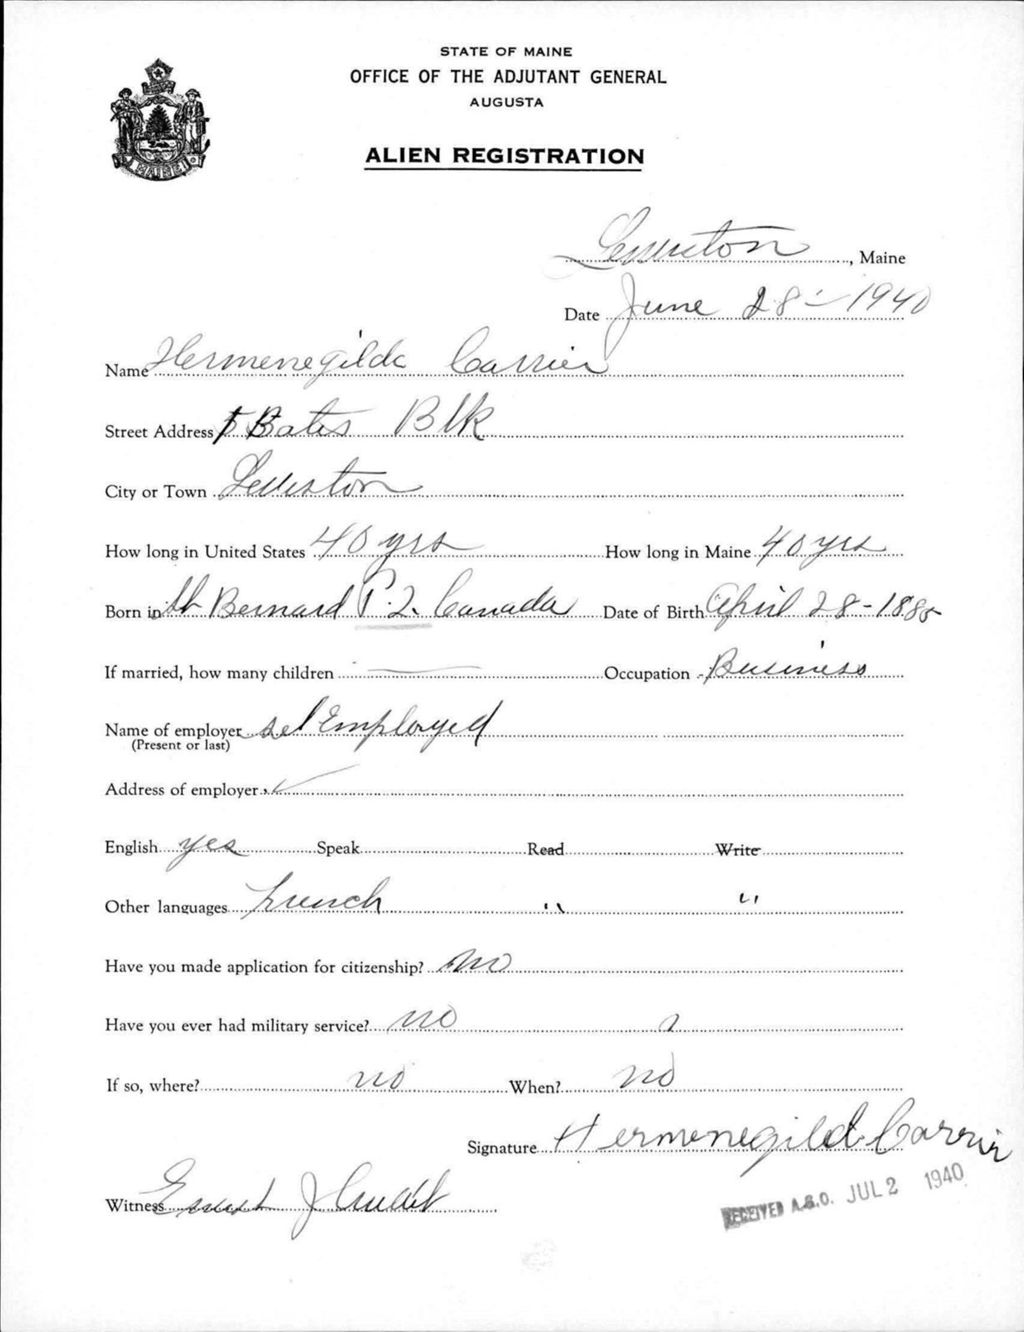 STATE OF MAINE
OFFICE OF THE ADJUTANT GENERAL
AUGUSTA
ALIEN REGISTRATION
MAINE
Lewiston, Maine
Date June 28 - 1940
Name Hermenegilde Carrier
Street Address 5 Bates Blk
City or Town Lewiston
How long in United States 40 yrs How long in Maine 40 yrs
Born in St Bernard P.Q. Canada Date of Birth April 28 - 1885
If married, how many children — Occupation Business
Name of employer self Employed
(Present or last)
Address of employer
English yes Speak Read Write
Other languages french " "
Have you made application for citizenship? no
Have you ever had military service? no
If so, where? no When? no
Signature Hermenegild Carrier
Witness Ernest J
RECEIVED A.G.O. JUL 2 1940